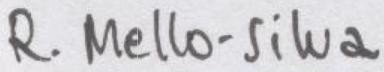 R. Mello-Silva